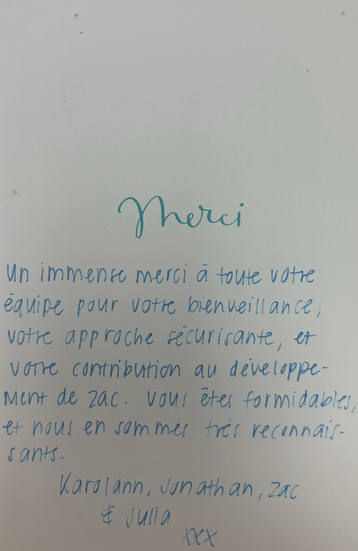 Merci
Un immense merci à toute votre
équipe pour votre bienveillance,
votre approche sécurisante, et
votre contribution au développe-
ment de Zac. Vous êtes formidables,
et nous en sommes très reconnais-
sants.
Karolann, Jonathan, Zac
& Julia
xxx